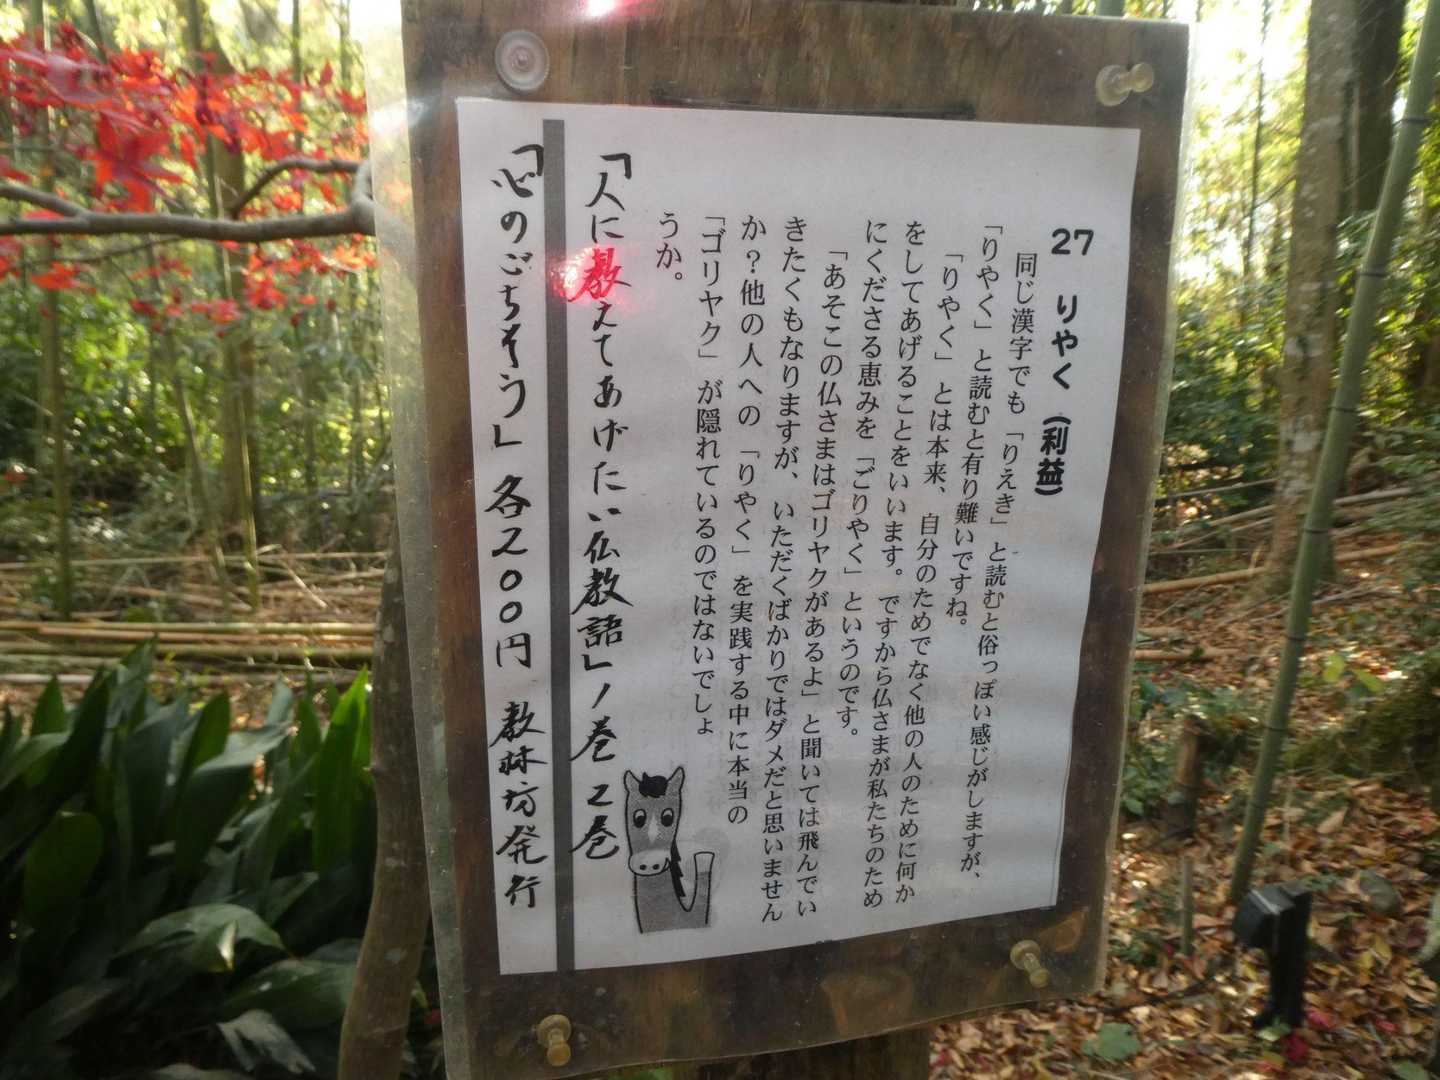 27 りやく（利益）
同じ漢字でも「りえき」と読むと俗っぽい感じがしますが、
「りやく」と読むと有り難いですね。
「りやく」とは本来、自分のためでなく他の人のために何か
をしてあげることをいいます。ですから仏さまが私たちのため
にくださる恵みを「ごりやく」というのです。
「あそこの仏さまはゴリヤクがあるよ」と聞いては飛んでい
きたくもなりますが、いただくばかりではダメだと思いません
か？他の人への「りやく」を実践する中に本当の
「ゴリヤク」が隠れているのではないでしょ
うか。
「人に教えてあげたい仏教語」ノ巻 2巻
「心のごちそう」各200円 教林坊発行